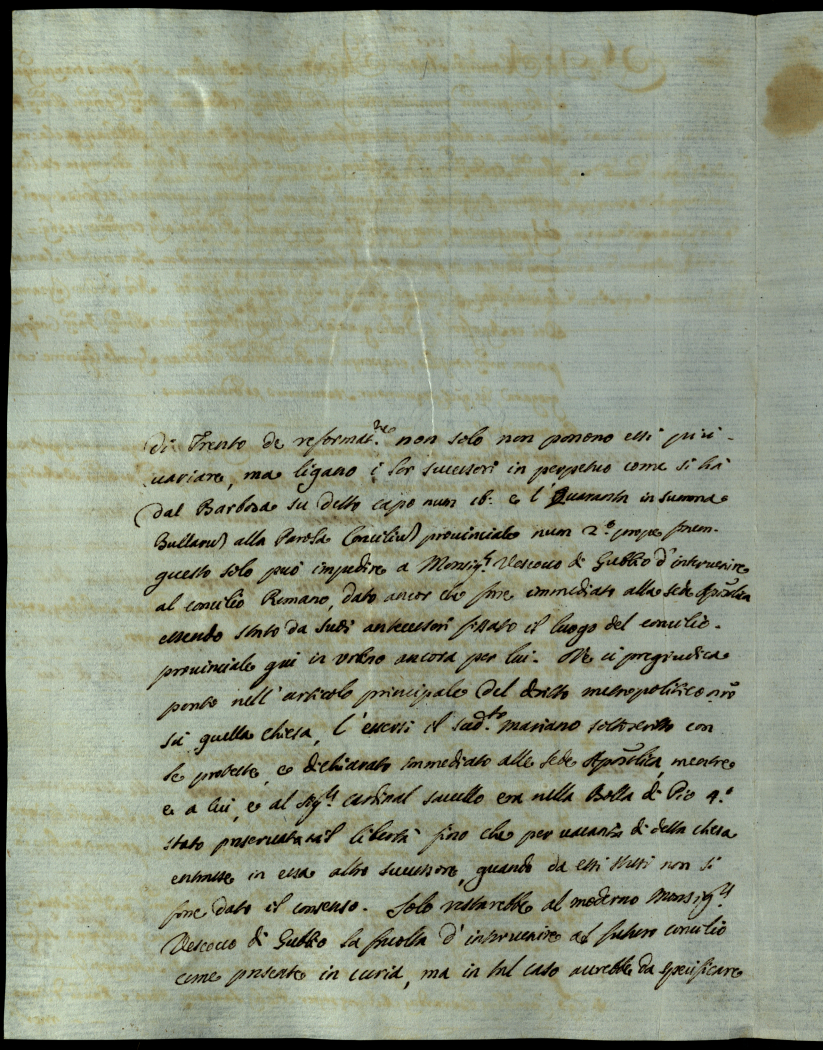 di Trento de reformat.ne non solo non ponono essi piu
uariare, ma ligano i lor successori in perpetuo come si hà
dal Barbosa su detto capo num 16. e l'Quaranta in summa
Bullarij alla Parola Concilium provinciale num 2.º prope finem.
questo solo può impedire a Monsig.r Vescouo di Gubbio d'interuenire
al concilio Romano, dato ancor che fosse immediato alla sede Apostolica
essendo stato da suoi antecessori fissato il luogo del concilio
prouinciale qui in vrbino ancora per lui. Ne ci pregiudica
ponto nell'articolo principale del dritto metropolitico nro
sù quella chiesa, l'essersi il sud.to Mariano sottoscritto con
le proteste, e dichiarato immediato alla sede Apostolica, mentre
e a lui, e al Sig.r Cardinal Sauello era nella Bolla di Pio 4.º
stato preseruata tal libertà fino che per uacanza di detta chiesa
entrasse in essa altro successore, quando da essi stessi non si
fosse dato il consenso. Solo restarebbe al moderno Monsig.r
Vescouo di Gubbio la facoltà d'interuenire al futuro concilio
come presente in curia, ma in tal caso aurebbe da specificare